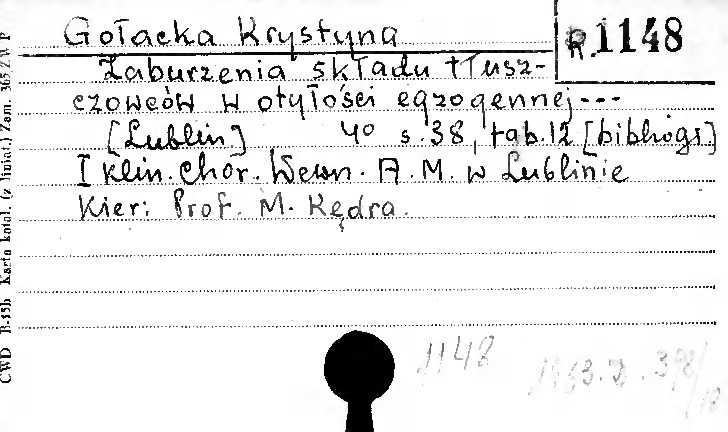 Gołacka Krystyna
R.1148
Zaburzenia składu tłusz-
czowców w otyłości egzogennej---
[Lublin] 4° s.38, tab.12 [bibliogr.]
I Klin. Chor. Wewn. A.M. w Lublinie
Kier: Prof. M. Kędra.
1148
CWD B-15b Karta katal. (z liniat.) Zam. 365 ZWP